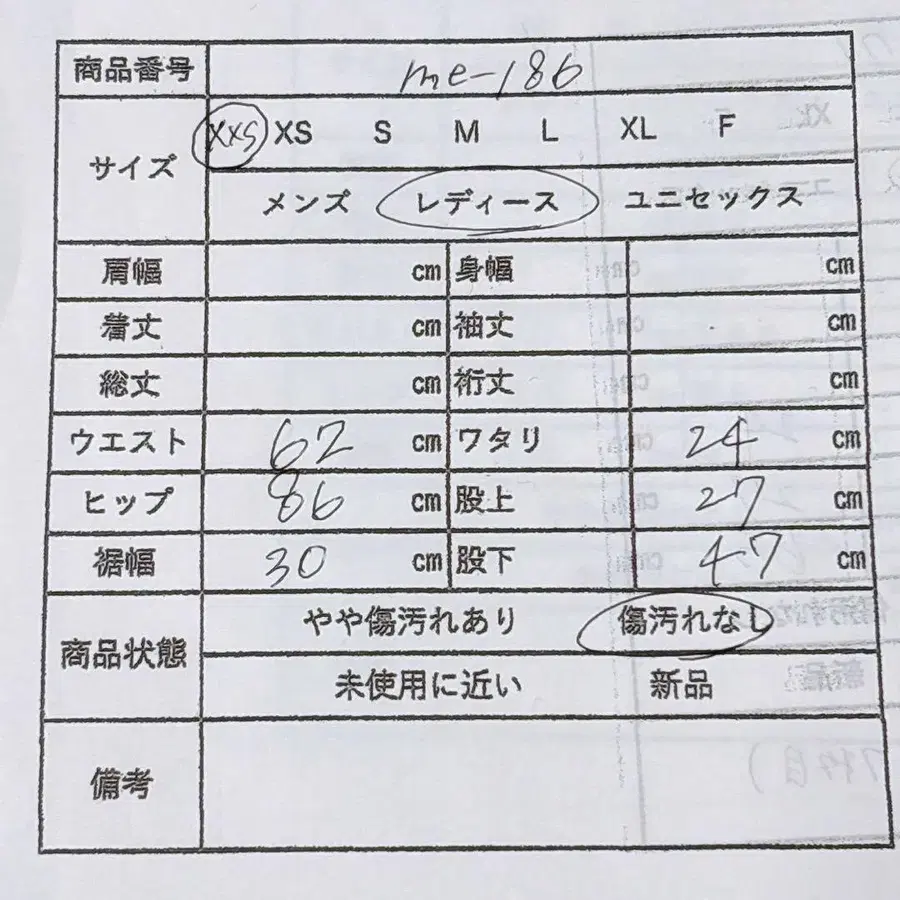 商品番号 me-186
サイズ XXS XS S M L XL F
メンズ レディース ユニセックス
肩幅 cm 身幅 cm
着丈 cm 袖丈 cm
総丈 cm 裄丈 cm
ウエスト 62 cm ワタリ 24 cm
ヒップ 86 cm 股上 27 cm
裾幅 30 cm 股下 47 cm
商品状態 やや傷汚れあり 傷汚れなし
未使用に近い 新品
備考